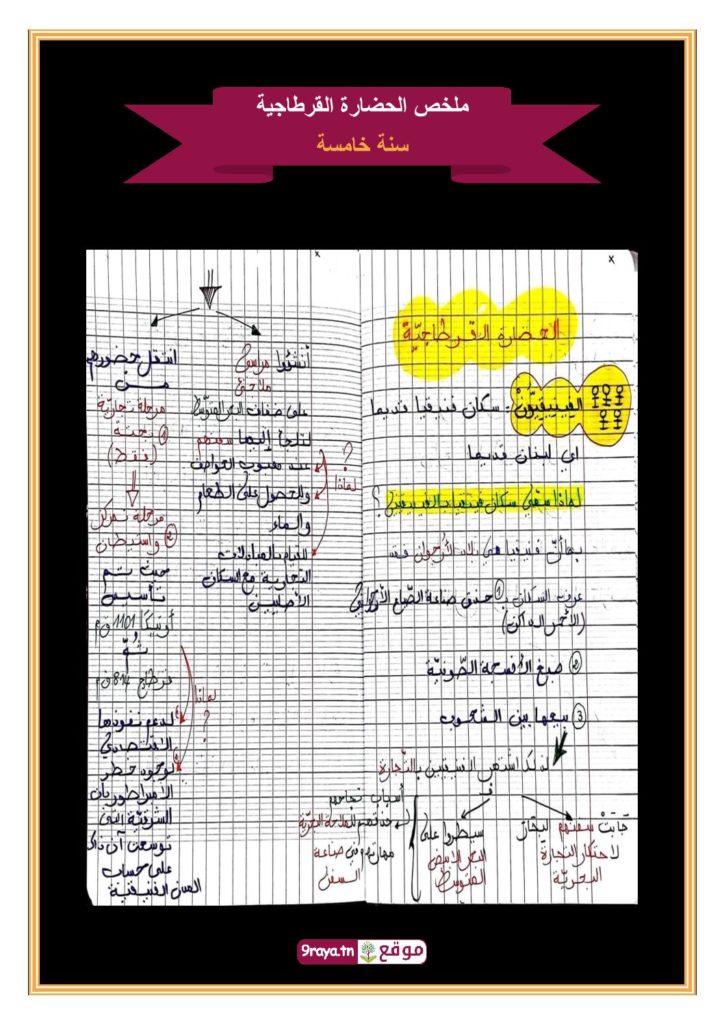 ملخص الحضارة القرطاجية
سنة خامسة
x
x
الحضارة القرطاجيّة
الفينيقيّون: سكان فنيقيا قديما
اي لبنان قديما
لماذا سمّي سكان فينيقيا بالفينيقيين؟
بما أنّ فنيقيا هي بلاد الأرجوان فقد
عرف السكان بـ ① حذق صناعة الصّباغ الأرجواني
(الأحمر الداكن)
② صبغ الأنسجة الصّوفيّة
③ بيعها بين الشعوب
لذلك اشتهر الفينيقيين بالتّجارة
فـ
جَابَتْ سفنهم البحار
لاحتكار التجارة
البحريّة
سيطروا على
البحر الأبيض
المتوسّط
أسباب نجاحهم
حذقهم للملاحة البحريّة
مهارتهم في صناعة
السفن
أنشؤوا مرسى
ملاجئ
على ضفاف البحر المتوسّط
لتلجأ إليها سفنهم
عند هبوب العواصف
والحصول على الطعام
والماء
القيام بالمبادلات
التجارية مع السكان
الأصليين
لماذا ؟
انتقل حضورهم
مـن
مرحلة تجاريّة
① بحتة
(فقط)
مرحلة تمركز
② واستيطان
حيث تم
تأسيس
أوتيكا 1101 ق م
ثُمَّ
قرطاج 814 ق م
لماذا ؟
لدعم نفوذها
الاقتصادي
لوجود خطر
الامبراطوريات
الشرقية التي
توسعت آن ذاك
على حساب
المدن الفنيقية
موقع 9raya.tn